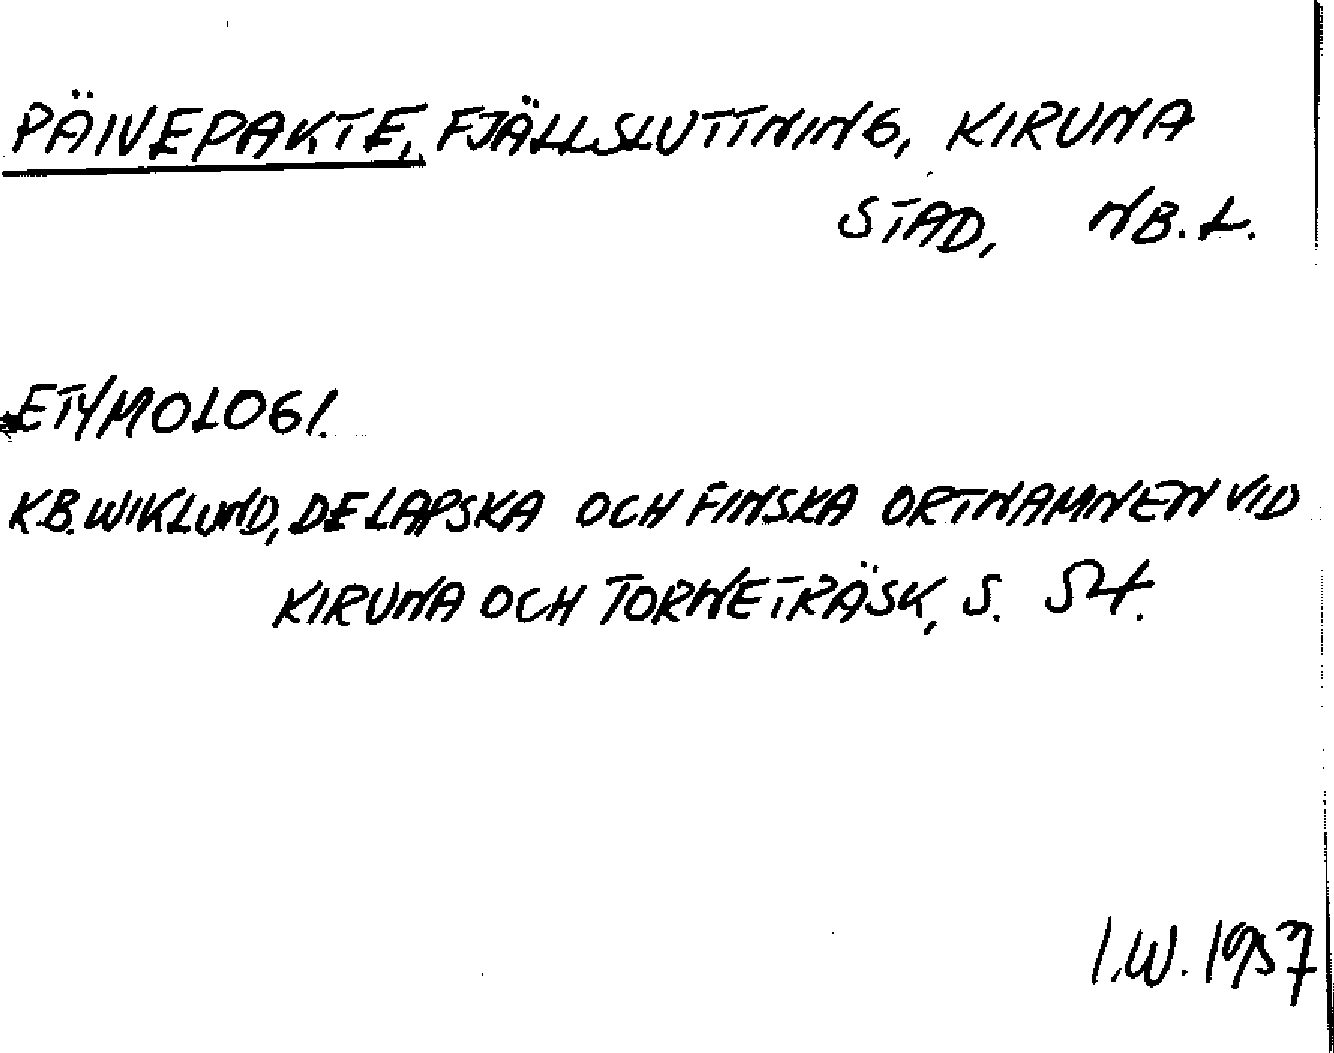 PÄIVEPAKTE, FJÄLLSLUTTNING, KIRUNA
STAD, NB.L.
ETYMOLOGI.
K.B. WIKLUND, DE LAPSKA OCH FINSKA ORTNAMNEN VID
KIRUNA OCH TORNETRÄSK, S. 54.
I.W. 1957